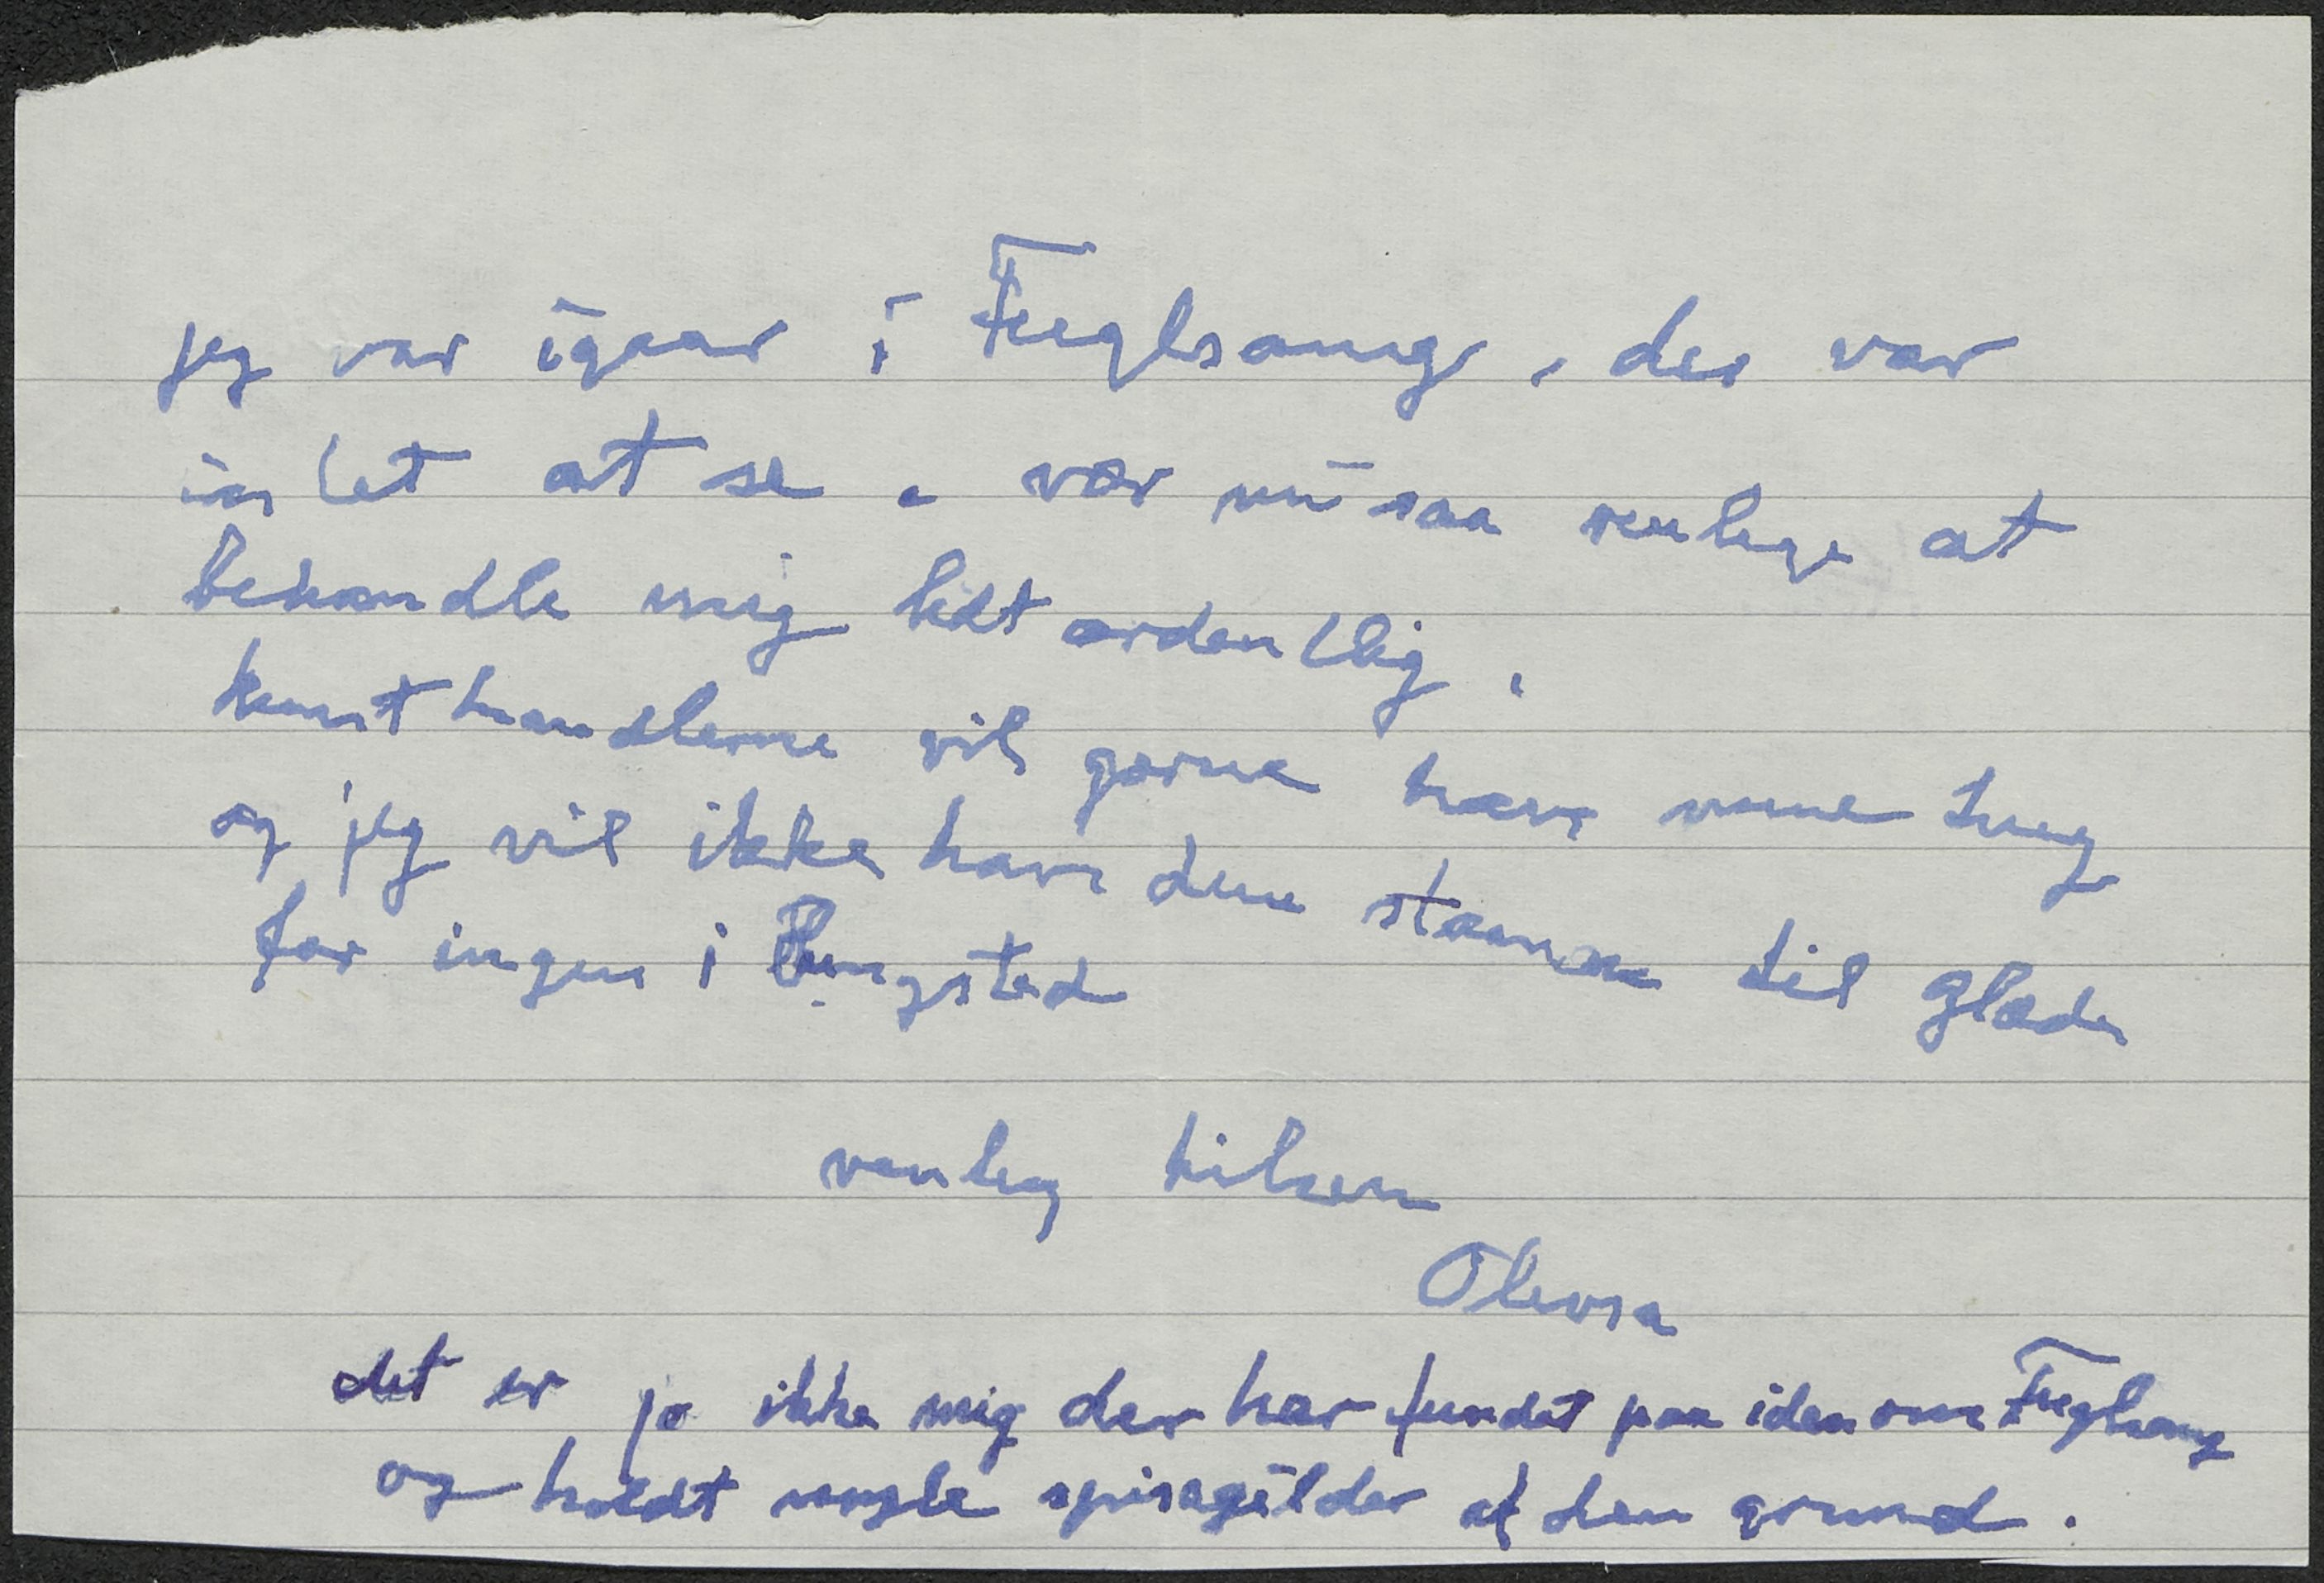 jeg var igaar i Fuglsang, der var
intet at se. vær nu saa venlige at
behandle mig lidt ordentlig.
kunsthandlerne vil gærne have mine ting
og jeg vil ikke have dem staaende til glæde
for ingen i Rungsted
venlig hilsen
det er jo ikke mig der har fundet paa iden om Fuglsang
og holdt nogle spisegilder af den grund.